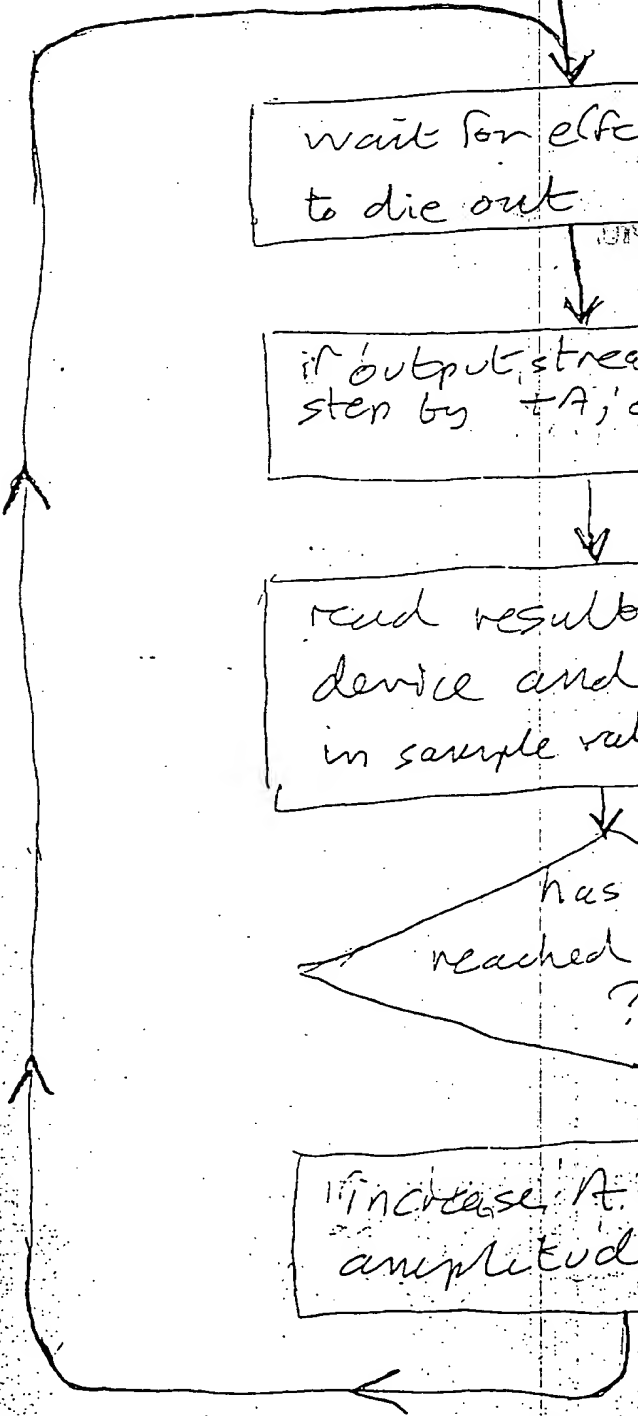 wait for effc
to die out
if output strea
step by +A, o
read result
device and
in sample val
has
reached
?
increase A
amplitud